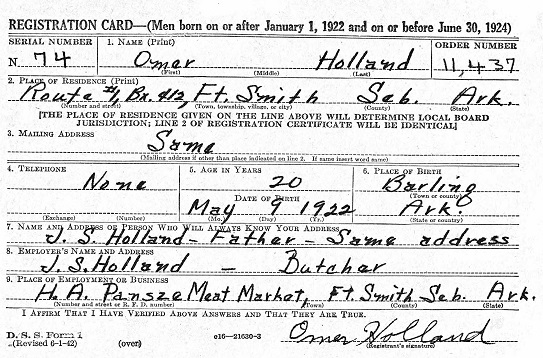 REGISTRATION CARD—(Men born on or after January 1, 1922 and on or before June 30, 1924)
SERIAL NUMBER 1. NAME (Print) ORDER NUMBER
N 74 Omer Holland 11,437
(First) (Middle) (Last)
2. PLACE OF RESIDENCE (Print)
Route #1, Bx. 412, Ft. Smith Seb. Ark.
(Number and street) (Town, township, village, or city) (County) (State)
[THE PLACE OF RESIDENCE GIVEN ON THE LINE ABOVE WILL DETERMINE LOCAL BOARD
JURISDICTION; LINE 2 OF REGISTRATION CERTIFICATE WILL BE IDENTICAL]
3. MAILING ADDRESS
Same
(Mailing address if other than place indicated on line 2. If same insert word same)
4. TELEPHONE 5. AGE IN YEARS 6. PLACE OF BIRTH
None 20 Barling
(Town or county)
DATE OF BIRTH
May 9 1922 Ark.
(Exchange) (Number) (Mo.) (Day) (Yr.) (State or country)
7. NAME AND ADDRESS OF PERSON WHO WILL ALWAYS KNOW YOUR ADDRESS
J. S. Holland - Father - Same address
8. EMPLOYER'S NAME AND ADDRESS
J. S. Holland - Butcher
9. PLACE OF EMPLOYMENT OR BUSINESS
H. A. Pansze Meat Market, Ft. Smith Seb. Ark.
(Number and street or R. F. D. number) (Town) (County) (State)
I AFFIRM THAT I HAVE VERIFIED ABOVE ANSWERS AND THAT THEY ARE TRUE.
D. S. S. Form 1
(Revised 6-1-42) (over) c16—21630-3 Omer Holland
(Registrant's signature)